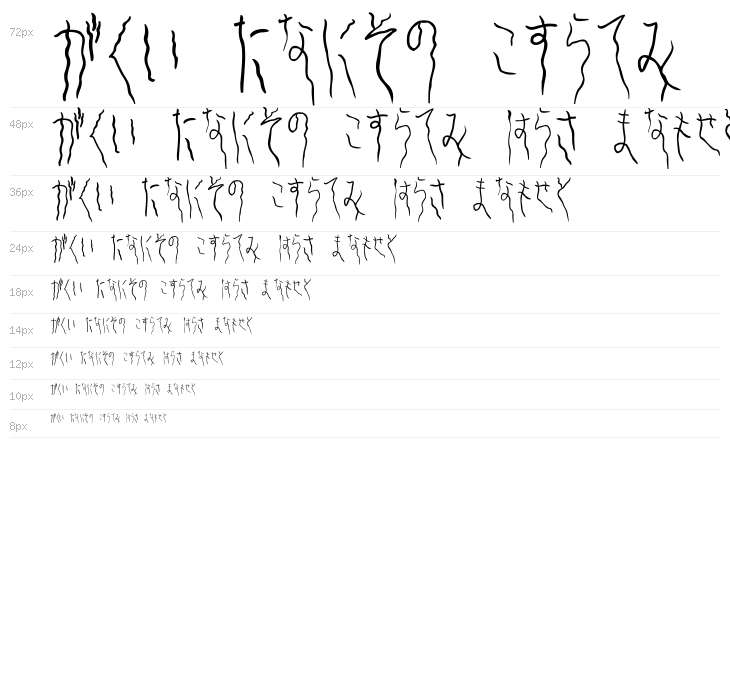 72px がくい たなにその こすらてみ
48px がくい たなにその こすらてみ はらさ まなもせと
36px がくい たなにその こすらてみ はらさ まなもせと
24px がくい たなにその こすらてみ はらさ まなもせと
18px がくい たなにその こすらてみ はらさ まなもせと
14px がくい たなにその こすらてみ はらさ まなもせと
12px がくい たなにその こすらてみ はらさ まなもせと
10px がくい たなにその こすらてみ はらさ まなもせと
8px がくい たなにその こすらてみ はらさ まなもせと